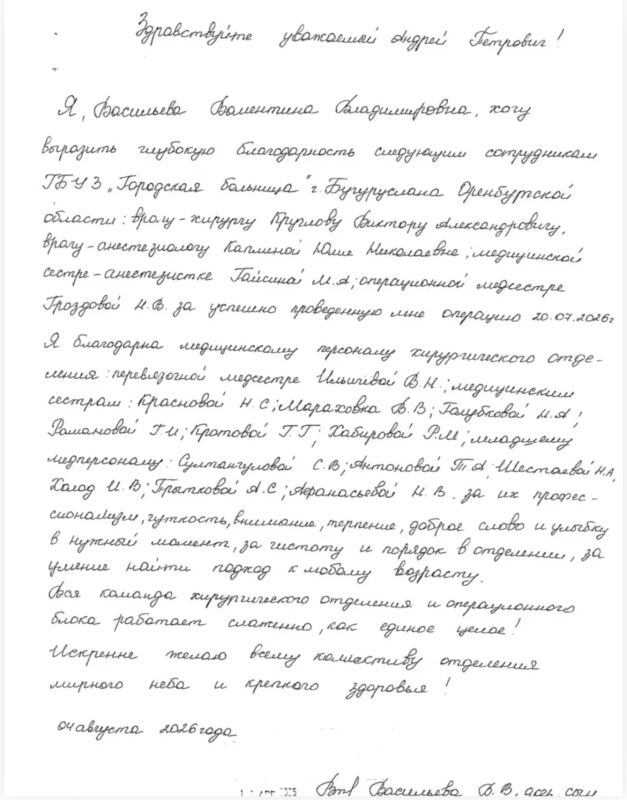 Здравствуйте уважаемый Андрей Петрович!
Я, Васильева Валентина Владимировна, хочу
выразить глубокую благодарность следующим сотрудникам
ГБУЗ „Городская больница" г. Бугуруслана Оренбургской
области: врачу-хирургу Круглову Виктору Александровичу,
врачу-анестезиологу Каплиной Юлие Николаевне; медицинской
сестре-анестезистке Гайсиной М.А; операционной медсестре
Гроздовой Н.В. за успешно проведенную мне операцию 20.07.2026г
Я благодарна медицинскому персоналу хирургического отде-
ления: перевязочной медсестре Ильичёвой В.Н.; медицинским
сестрам: Красновой Н С; Мараховка В.В; Голубковой Н.А;
Романовой Г.И; Кротовой Г.Г; Хабировой Р.М; младшему
медперсоналу: Султангуловой С.В; Антоновой Т А; Шестаевой Н.А,
Холод И.В; Прытковой А.С; Афанасьевой Н.В. за их профес-
сионализм, чуткость, внимание, терпение, доброе слово и улыбку
в нужный момент, за чистоту и порядок в отделении, за
умение найти подход к любому возрасту.
Вся команда хирургического отделения и операционного
блока работает слаженно, как единое целое!
Искренне желаю всему коллективу отделения
мирного неба и крепкого здоровья!
04 августа 2026 года
Васильева В.В.